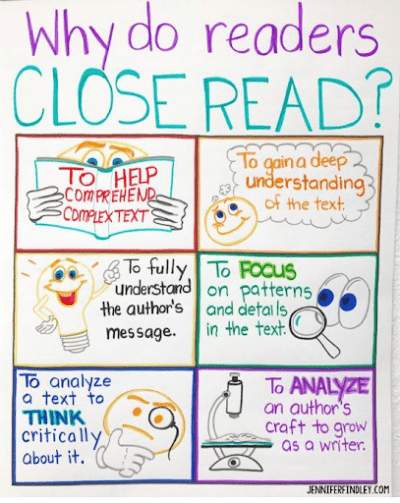 Why do readers
CLOSE READ?
TO HELP
COMPREHEND
COMPLEX TEXT
To gain a deep
understanding
of the text.
To fully
understand
the author's
message.
To FOCUS
on patterns
and details
in the text.
To analyze
a text to
THINK
critically
about it.
To ANALYZE
an author's
craft to grow
as a writer.
JENNIFERFINDLEY.COM